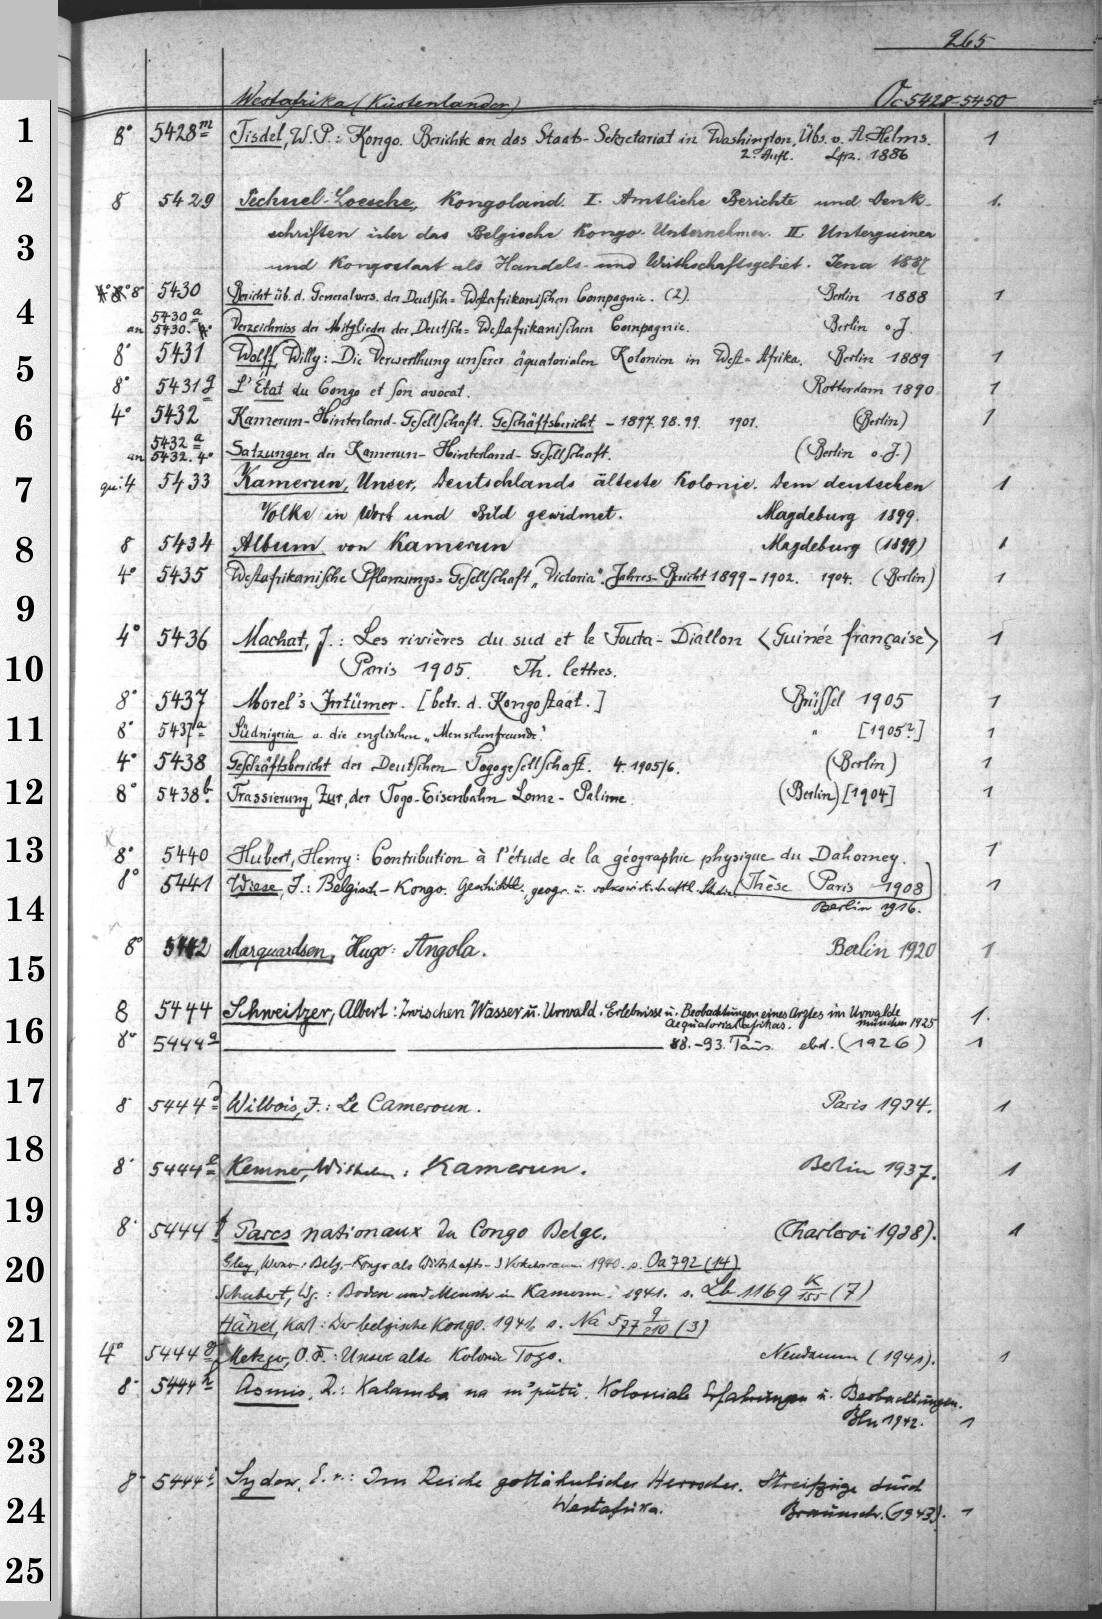 265
Westafrika (Küstenländer) Oc 5428-5450
1 8° 5428m Tisdel, W. P.: Kongo. Berichte an das Staats-Sekretariat in Washington, Übs. v. A. Helms. 1
2. Aufl. Lpz. 1886
2 8 5429 Pechuel-Loesche, Kongoland. I. Amtliche Berichte und Denk- 1.
3 schriften über das Belgische Kongo-Unternehmen. II. Unterguinea
und Kongostaat als Handels- und Wirthschaftsgebiet. Jena 1887
8° 5430 Bericht üb. d. Generalvers. der Deutsch-Westafrikanischen Compagnie. (2). Berlin 1888 1
4 an 5430a 5430. 4° Verzeichniss der Mitglieder der Deutsch-Westafrikanischen Compagnie. Berlin o. J.
5 8° 5431 Wolff, Willy: Die Verwerthung unserer äquatorialen Kolonien in West-Afrika. Berlin 1889 1
8° 5431g L'État du Congo et son avocat. Rotterdam 1890 1
6 4° 5432 Kamerun-Hinterland-Gesellschaft. Geschäftsbericht - 1897. 98. 99. 1901. (Berlin) 1
an 5432a 5432. 4° Satzungen der Kamerun-Hinterland-Gesellschaft. (Berlin o. J.)
7 qu: 4 5433 Kamerun, Unser, Deutschlands älteste Kolonie. Dem deutschen 1
Volke in Wort und Bild gewidmet. Magdeburg 1899.
8 8 5434 Album von Kamerun Magdeburg (1899) 1
4° 5435 Westafrikanische Pflanzungs-Gesellschaft „Victoria“. Jahres-Bericht 1899-1902. 1904. (Berlin) 1
9
4° 5436 Machat, J.: Les rivières du sud et le Fouta-Diallon <Guinée française> 1
10 Paris 1905. Th. lettres.
8° 5437 Morel's Irrtümer. [betr. d. Kongostaat.] Brüssel 1905 1
11 8° 5437a Südnigeria u. die englischen „Menschenfreunde“. " [1905?] 1
4° 5438 Geschäftsbericht der Deutschen Togogesellschaft. 4. 1905/6. (Berlin) 1
12 8° 5438b. Trassierung, Zur, der Togo-Eisenbahn Lome-Palime. (Berlin) [1904] 1
13 8° 5440 Hubert, Henry: Contribution à l'étude de la géographie physique du Dahomey. 1
8° 5441 Wiese, J.: Belgisch-Kongo. Geschichtl., geogr. u. volkswirtschaftl. Studie. Thèse Paris 1908 1
14 Berlin 1916.
8° 5442 Marquardsen, Hugo: Angola. Berlin 1920 1
15
8 5444 Schweitzer, Albert: Zwischen Wasser u. Urwald. Erlebnisse u. Beobachtungen eines Arztes im Urwalde 1.
16 Aequatorialafrikas. München 1925
8° 5444a 88.-93. Taus. ebd. (1926) 1
17 8 5444 Wilbois, J.: Le Cameroun. Paris 1934. 1
18 8° 5444e Kemner, Wilhelm: Kamerun. Berlin 1937. 1
19 8° 5444f Parcs nationaux du Congo Belge. (Charleroi 1938). 1
20 Belg.-Kongo als Wirtschafts- u. Verkehrsraum 1940. s. Oa 792 (14)
Schubert, Wg.: Boden und Mensch in Kamerun. 1941. s. Lb 1169 K/155 (7)
21 Hänel, Karl: Der belgische Kongo. 194 s. Na 577 9/210 (3)
4° 5444g Metzger, O. F.: Unsere alte Kolonie Togo. Neudamm (1941). 1
22 8° 5444h Asmis, R.: Kalamba na m'putu. Koloniale Erfahrungen u. Beobachtungen.
Bln 1942. 1
23 8° 5444i Sydow, E. v.: Im Reiche gottähnlicher Herrscher. Streifzüge durch
24 Westafrika. Braunschw. (1943). 1
25